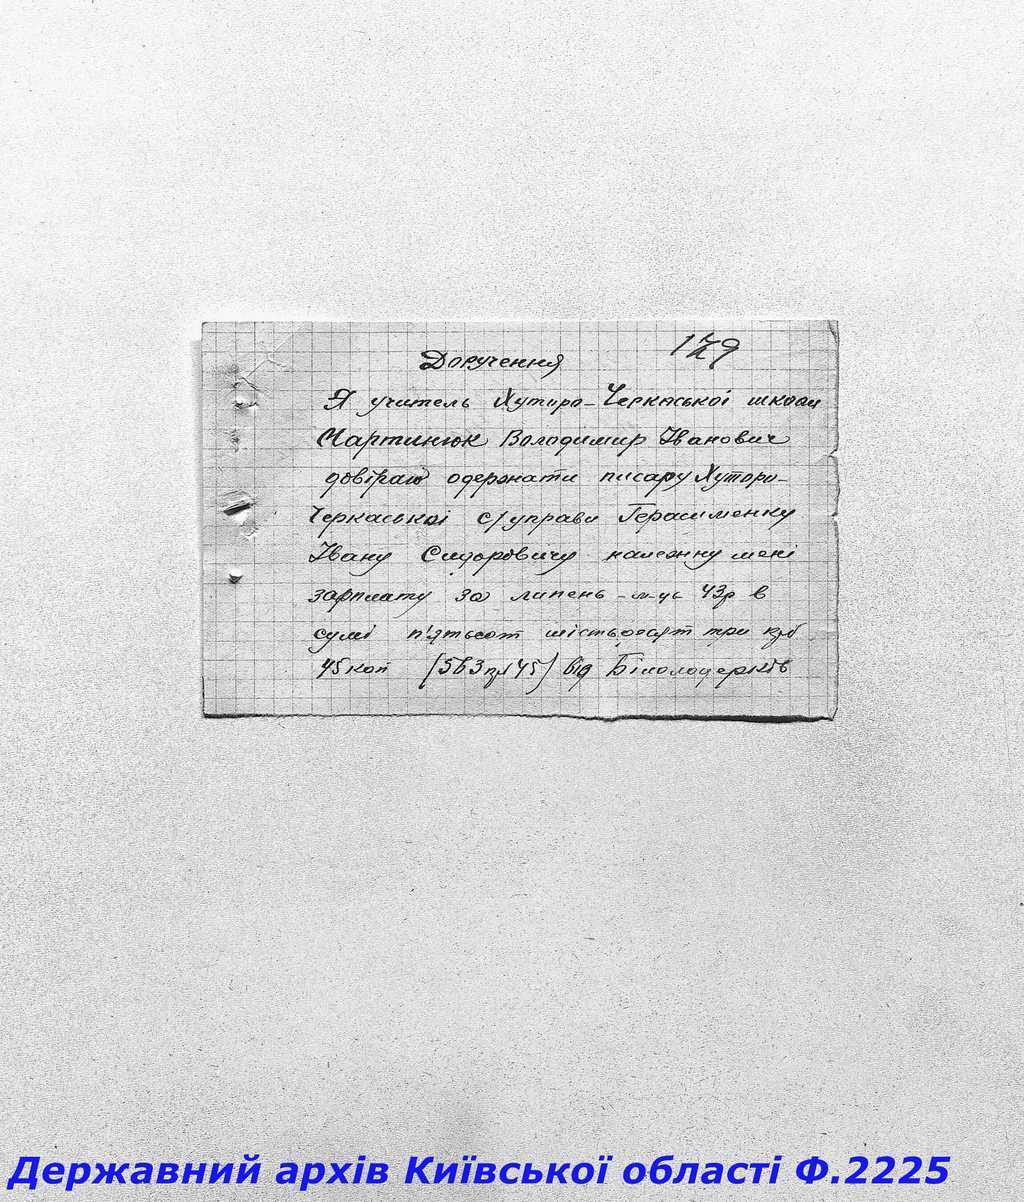 179
Доручення
Я учитель Хутиро-Черкаської школи
Мартинюк Володимир Іванович
довіраю одержати писару Хуторо-
Черкаської с/управи Герасименку
Івану Сидоровичу належну мені
зарплату за липень м-ць 43р в
сумі п'ятьсот шістьдесят три крб
45 коп (563 крб 45) від Білолоцерків
Державний архів Київської області Ф.2225